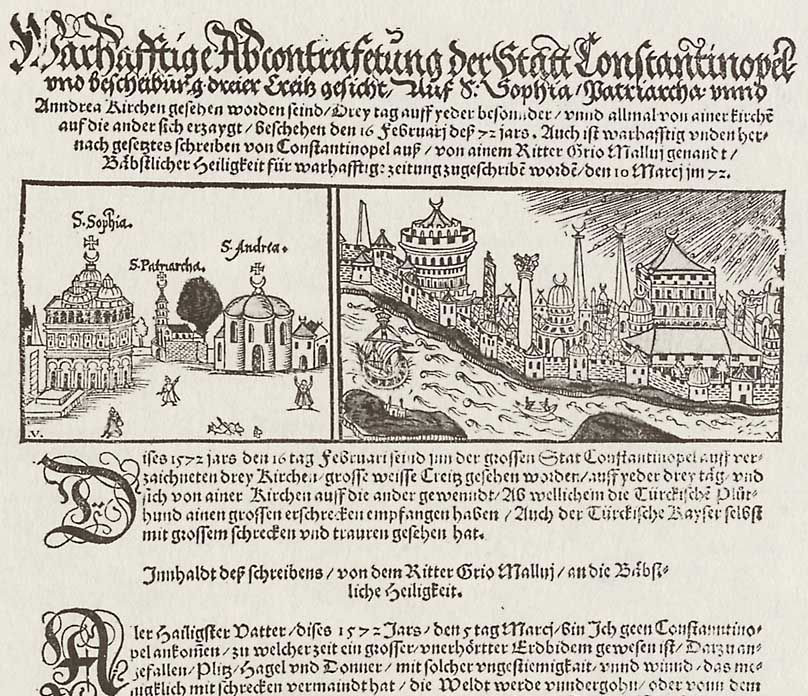 Warhafftige Abcontrafetung der Statt Constantinopel
vnd bescheibung dreier Creitz gesicht / Auf S. Sophia / Patriarcha vnnd
Anndrea Kirchen gesehen worden seind / Drey tag auff yeder besonder / vnnd allmal von ainer kirchē
auf die ander sich erzaygt / beschehen den 16 Februarj deß 72 jars. Auch ist warhafftig vnden her-
nach gesetztes schreiben von Constantinopel auß / von ainem Ritter Grio Malluj genandt /
Bäbstlicher Heiligkeit für warhafftige zeitung zugeschribē wordē / den 10 Marcj jm 72.
S. Sophia.
S. Patriarcha.
S. Andrea.
.V.
V
Dises 1572 jars den 16 tag Februari seind jnn der grossen Stat Constantinopel auff ver-
zaichneten drey Kirchen / grosse weisse Creitz gesehen worden / auff yeder drey täg / vnd
sich von ainer Kirchen auff die ander gewenndt / Ab wellichem die Türckischē Plüt-
hund ainen grossen erschrecken empfangen haben / Auch der Türckische Kayser selbst
mit grossem schrecken vnd trauren gesehen hat.
Innhaldt deß schreibens / von dem Ritter Grio Malluj / an die Bäbst-
liche Heiligkeit.
Aler Hailigster Vatter / dises 1572 Jars / den 5 tag Marcj / bin Ich geen Constanntino-
pel ankom̄en / zu welcher zeit ein grosser / vnerhörtter Erdbidem gewesen ist / Darzu an-
gefallen / Plitz / Hagel vnd Donner / mit solcher vngestiemigkait / vnnd winnd / das me-
nigklich mit schrecken vermaindt hat / die Weldt werde vndergohn / oder vonn dem